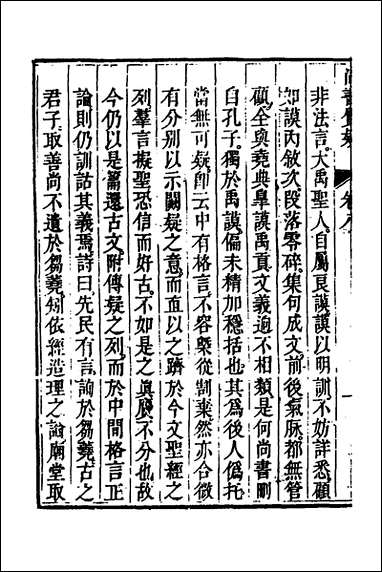 非法言大禹聖人自屬良謨謨以明訓不妨詳悉顧
如謨內敘次段落零碎集句成文前後氣脉都無管
顧全與堯典臯謨禹貢文義適不相類是何尚書刪
自孔子獨於禹謨偏未精加穩括也其爲後人僞托
當無可疑即云中有格言不容槩從割棄然亦合微
有分別以示闕疑之意而直以之躋於今文聖經之
列羣言擬聖恐信而好古不如是之眞贋不分也故
今仍以是篇還古文附傳疑之列而於中間格言正
論則仍訓詁其義焉詩曰先民有言詢於芻蕘古之
君子取善尚不遺於芻蕘矧依經造理之論廟堂取